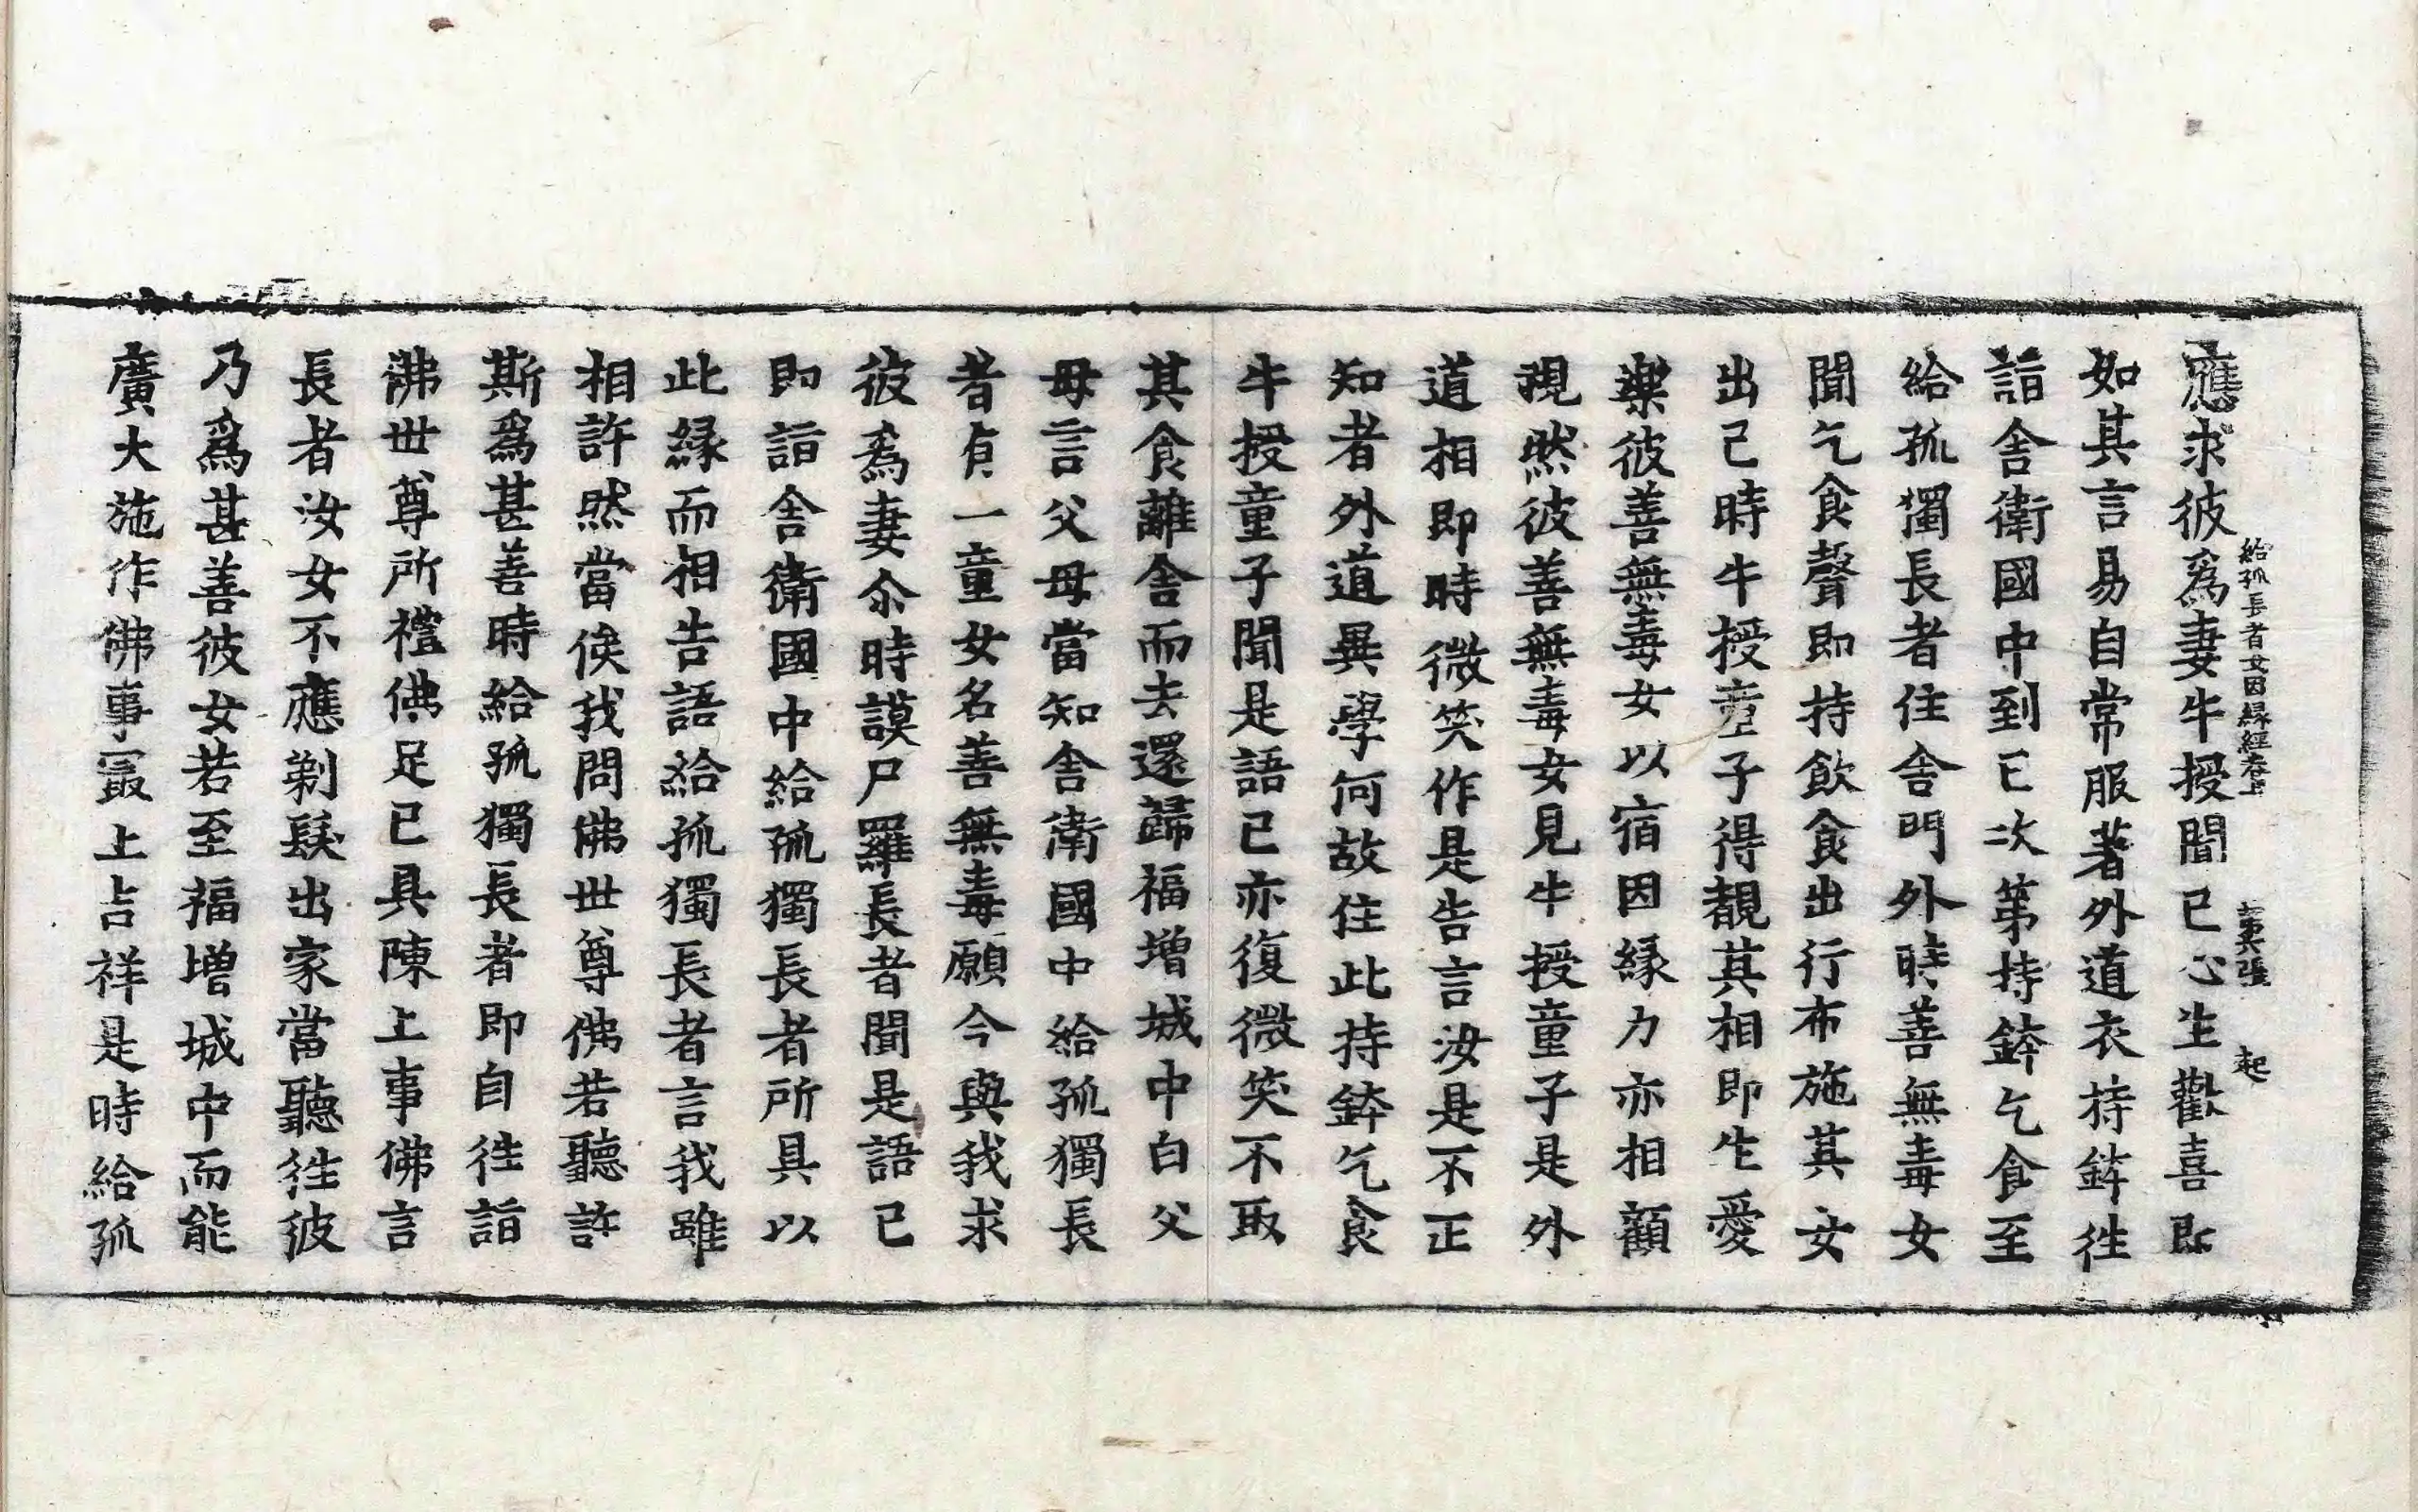 給孤長者女因縁經卷上 第 張 起
應求彼爲妻牛授聞已心生歡喜即
如其言易自常服著外道衣持鉢徃
詣舍衛國中到已次第持鉢乞食至
給孤獨長者住舍門外時善無毒女
聞乞食聲即持飲食出行布施其女
出已時牛授童子得覩其相即生愛
樂彼善無毒女以宿因縁力亦相顧
視然彼善無毒女見牛授童子是外
道相即時微笑作是告言汝是不正
知者外道異學何故住此持鉢乞食
牛授童子聞是語已亦復微笑不取
其食離舍而去還歸福增城中白父
母言父母當知舍衛國中給孤獨長
者貞一童女名善無毒願今與我求
彼爲妻尒時謨尸羅長者聞是語已
即詣舍衛國中給孤獨長者所具以
此縁而相告語給孤獨長者言我雖
相許然當俟我問佛世尊佛若聽許
斯爲甚善時給孤獨長者即自徃詣
佛世尊所禮佛足已具陳上事佛言
長者汝女不應剃髮出家當聽徃彼
乃爲甚善彼女若至福增城中而能
廣大施作佛事冣上吉祥是時給孤